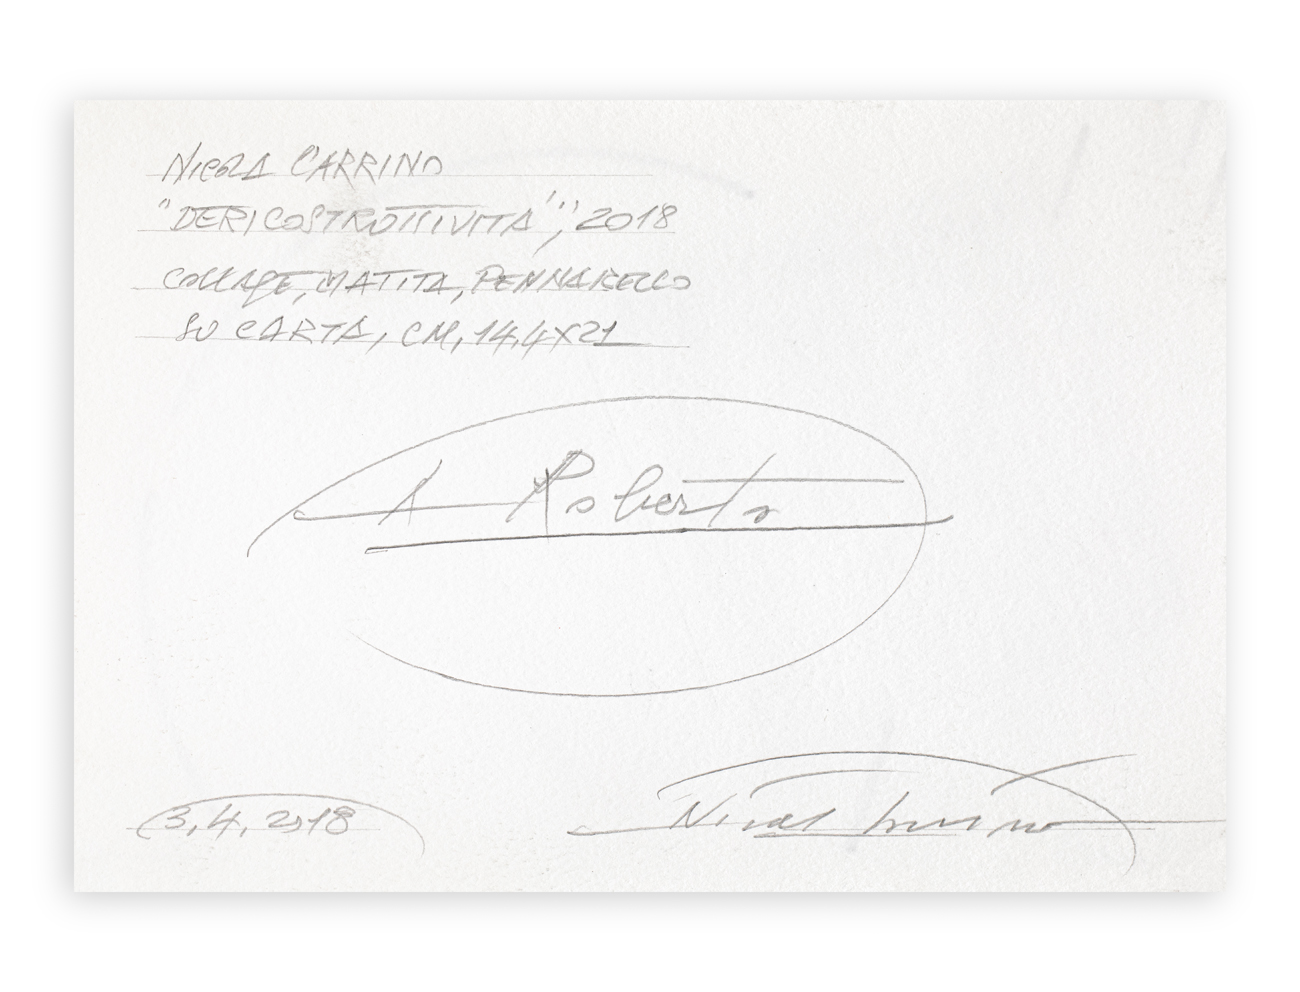 NICOLA CARRINO
"DERICOSTRUTTIVITA'", 2018
COLLAGE, MATITA, PENNARELLO
SU CARTA, CM, 14,4X21
A Roberto
3,4,2018
Nicola Carrino